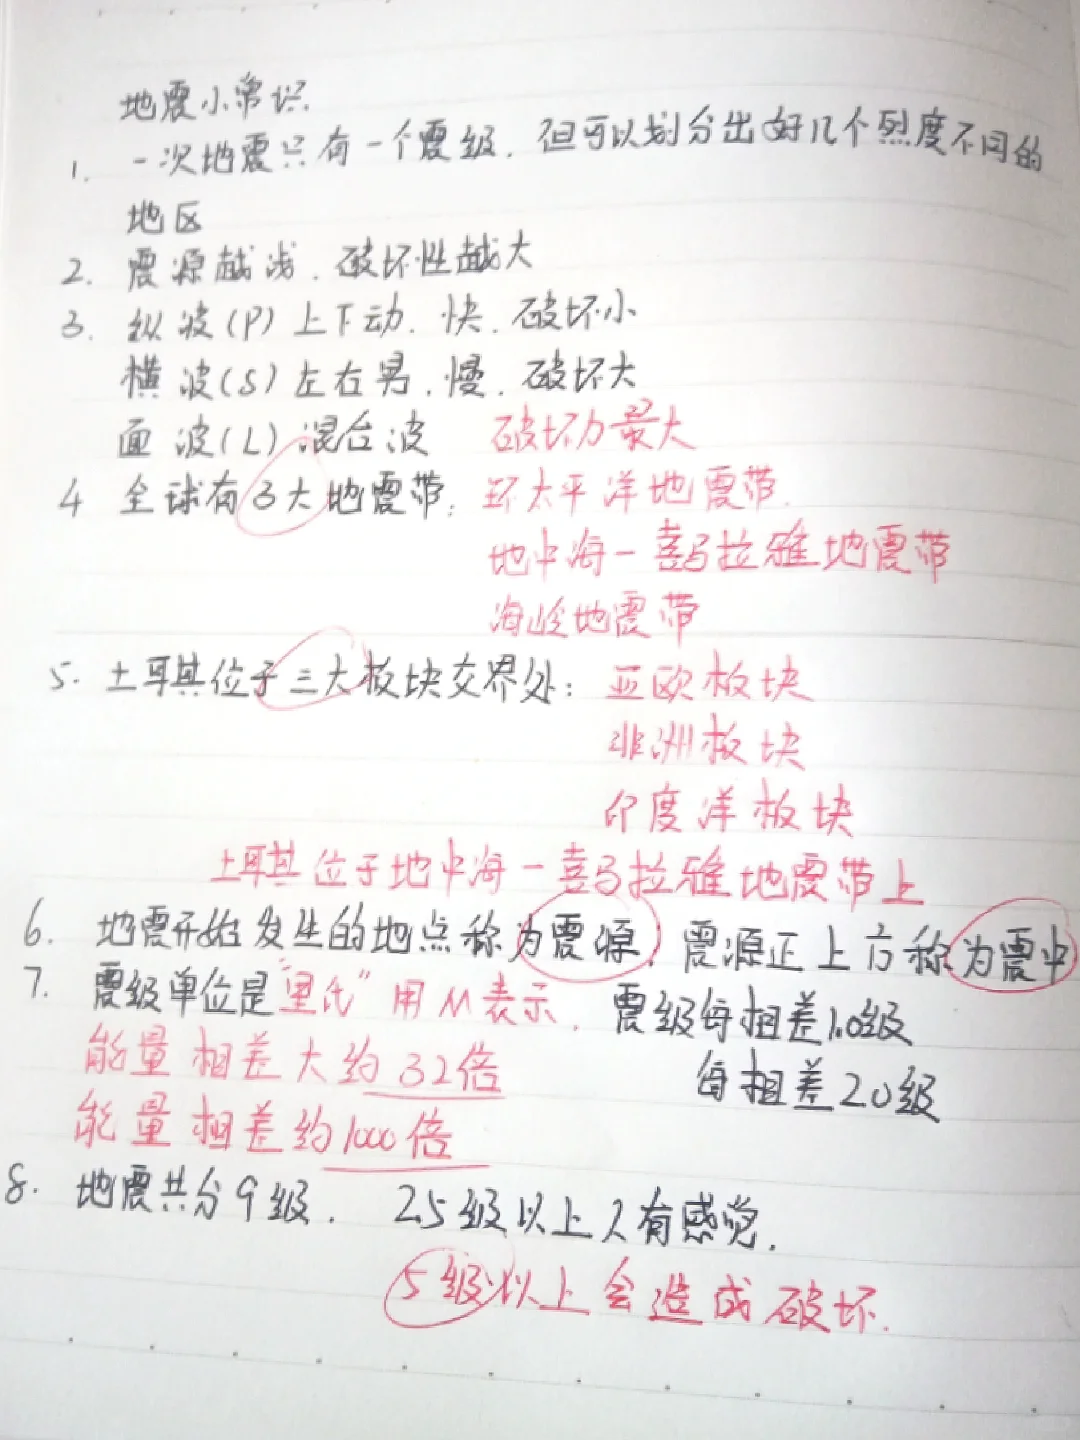 地震小常识.
1. 一次地震只有一个震级. 但可以划分出好几个烈度不同的
地区
2. 震源越浅. 破坏性越大
3. 纵波(P)上下动. 快. 破坏小
横波(S)左右晃. 慢. 破坏大
面波(L)混合波 破坏力最大
4 全球有3大地震带: 环太平洋地震带.
地中海-喜马拉雅地震带
海岭地震带
5. 土耳其位于三大板块交界处: 亚欧板块
非洲板块
印度洋板块
土耳其位于地中海-喜马拉雅地震带上
6. 地震开始发生的地点称为震源. 震源正上方称为震中
7. 震级单位是"里氏"用M表示. 震级每相差1.0级
能量相差大约32倍 每相差2.0级
能量相差约1000倍
8. 地震共分9级. 2.5级以上人有感觉.
5级以上会造成破坏.